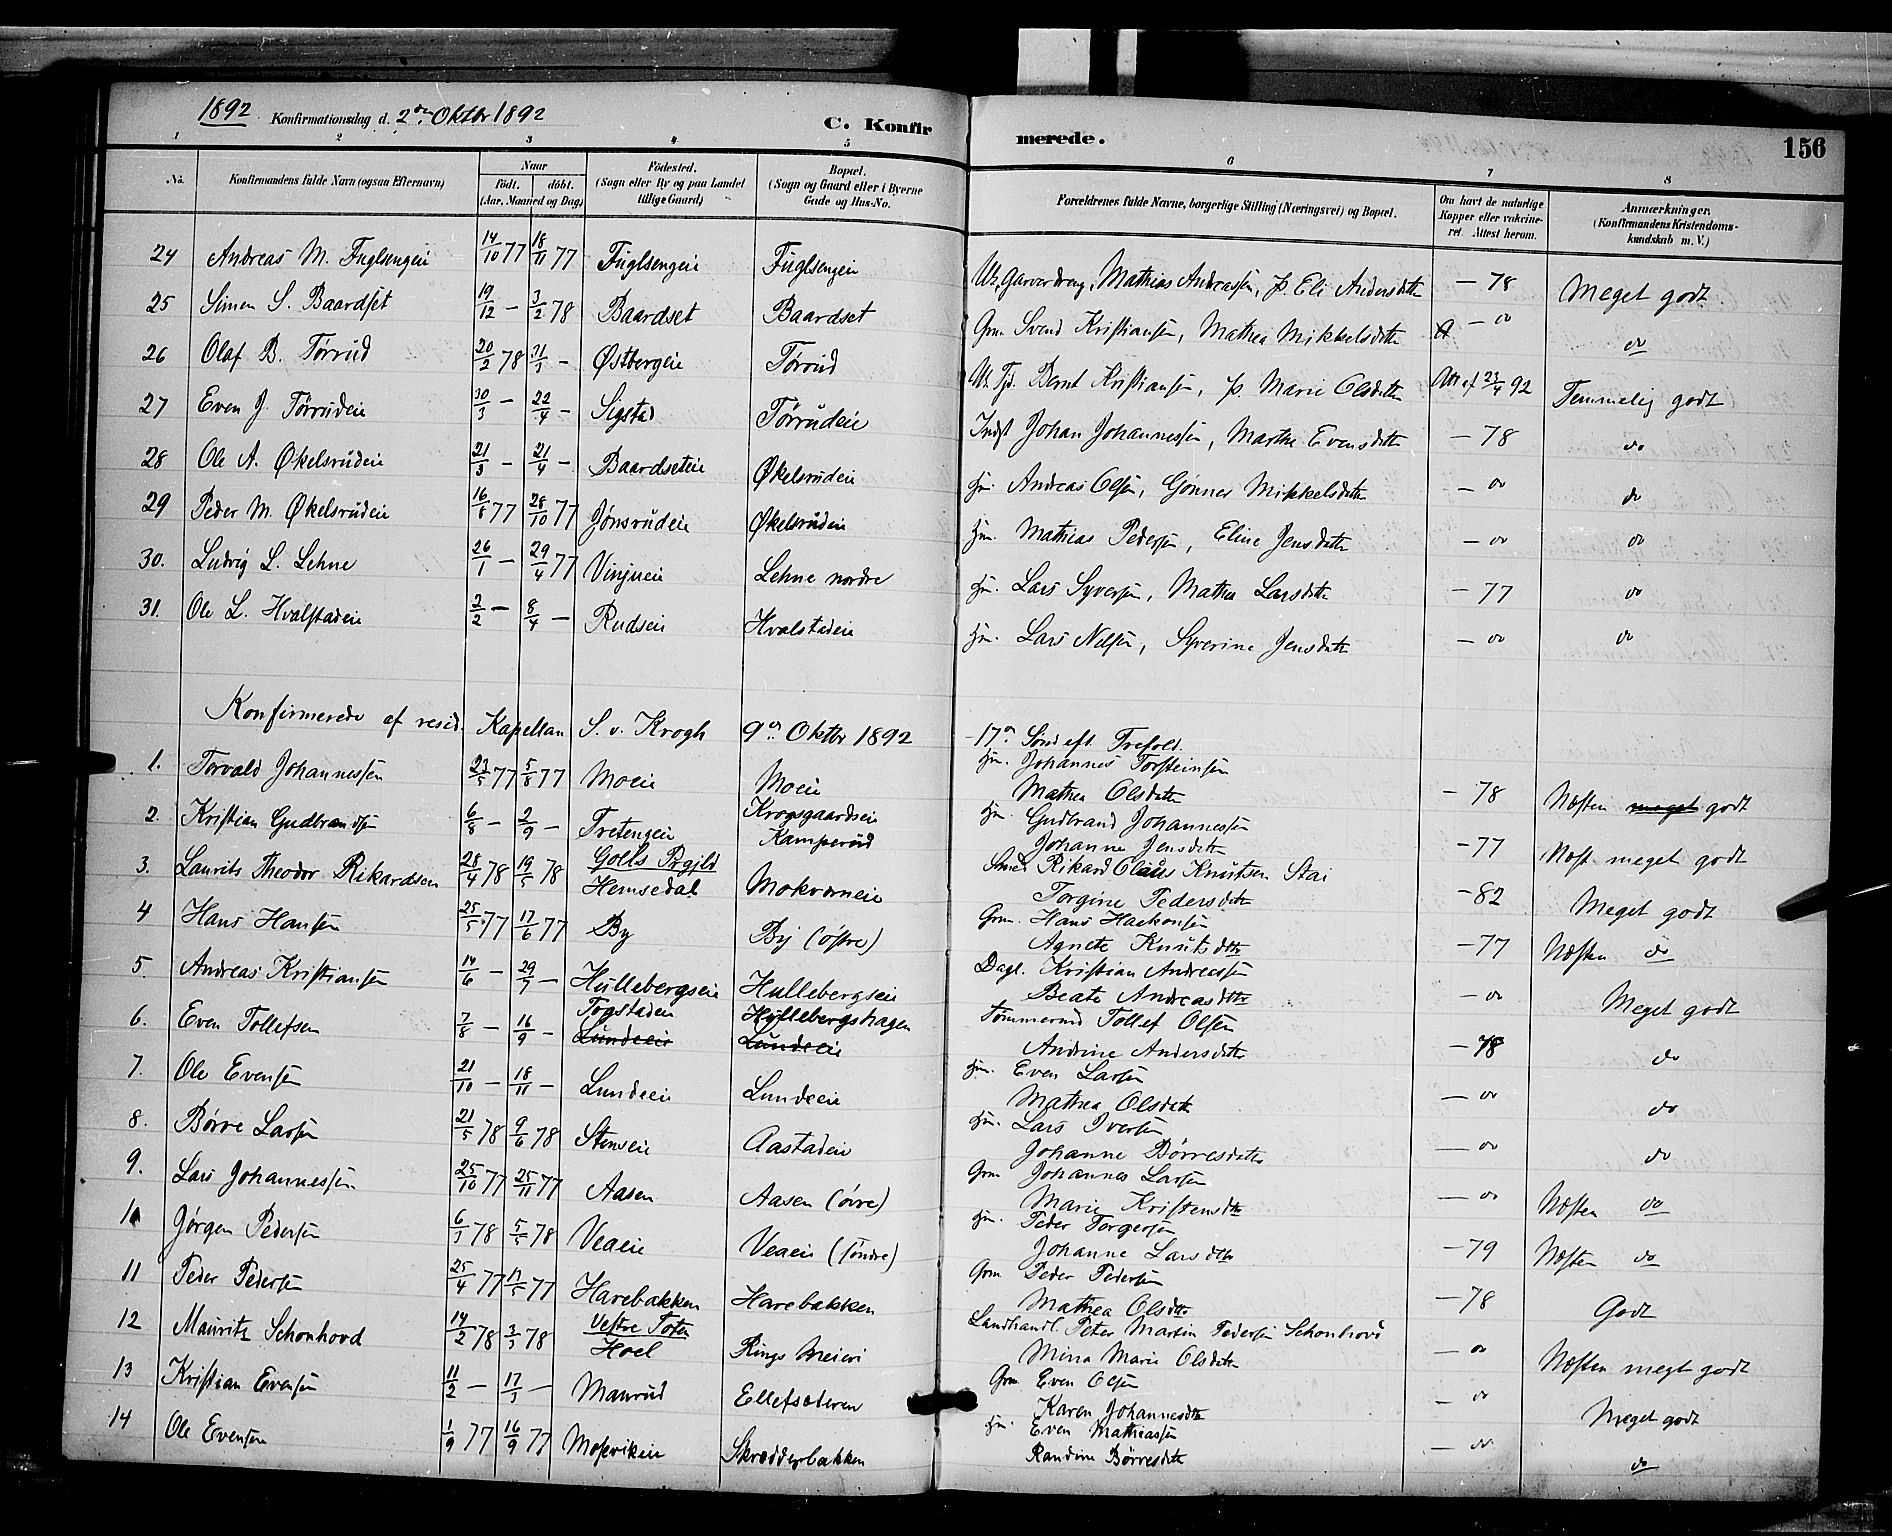 1892 Konfirmationsdag d. 2den Oktbr 1892
C. Konfirmerede.
156
1 2 3 4 5 6 7 8
No. Konfirmandens fulde Navn (ogsaa Efternavn) Naar født. døbt. (Aar, Maaned og Dag) Fødested. (Sogn eller By og paa Landet tillige Gaard) Bopæl. (Sogn og Gaard eller i Byerne Gade og Hus-No. Forældrenes fulde Navne, borgerlige Stilling (Næringsvei) og Bopæl. Om havt de naturlige Kopper eller vakcineret. Attest herom. Anmærkninger. (Konfirmandens Kristendomskundskab m. V.)
24 Andreas M. Fuglsengeie 14/10 77 18/11 77 Fuglsengeie Fuglsengeie Garverdreng, Mathias Andreassen, Eli Andersdatter – 78 Meget godt
25 Simen S. Baardset 19/12 – 3/2 78 Baardset Baardset Grm Svend Kristiansen, Mathea Mikkelsdatter – do do
26 Olaf B. Tørrud 20/2 78 31/3 – Østbergeie Tørrud Bernt Kristiansen, Marie Olsdatter 92 Temmelig godt
27 Even J. Tørrudeie 30/3 – 22/4 – Sigstad Tørrudeie Indst Johan Johannessen, Marthe Evensdatter – 78 do
28 Ole A. Økelsrudeie 21/3 – 21/4 – Baardseteie Økelsrudeie Hm. Andreas Olsen, Gønner Mikkelsdatter – do do
29 Peder M. Økelsrudeie 77 28/10 77 Jønsrudeie Økelsrudeie Hm. Mathias Pedersen, Eline Jensdatter – do do
30. Ludvig L. Lehne 26/1 – 29/4 77 Vinjueie Lehne nordre Hm. Lars Syversen, Mathea Larsdatter – 77 do
31. Ole L. Hvalstadeie 2/2 – 8/4 – Rudseie Hvalstadeie Hm. Lars Nilsen, Syverine Jensdatter – do do
Konfirmerede af resid. Kapellan S. v. Krogh 9de Oktbr 1892 17de Sønd eft. Trefold.
1. Torvald Johannessen 23/5 77 5/8 77 Moeie Moeie Hm. Johannes Torsteinsen
Mathea Olsdatter – 78 Næsten meget godt
2. Kristian Gudbrandsen 6/8 – 2/9 – Tretengeie Krogsgaardseie Kamperud Hm. Gudbrand Johannessen
Johanne Jensdatter – 77 Næst meget godt
3. Laurits Theodor Rikardsen 28/4 78 19/5 78 Golls Prgjld Hemsedal Mokværneie Smed Rikard Olaus Knutsen Stai
Torgine Pedersdatter – 82 Meget godt
4 Hans Hansen 25/5 77 17/6 77 By By (østre) Grm. Hans Haakonsen
Agnete Knutsdttr – 77 Næsten do
5. Andreas Kristiansen 14/6 – 29/7 – Hullebergseie Hullebergseie Dagl. Kristian Andreassen
Beate Andreasdttr – do Meget godt
6. Even Tollefsen 7/8 – 16/9 – Togstadeie Lundeeie Hullebergshagen Lundeeie Tømmermd Tollef Olsen
Andrine Andersdatter – 78 do
7. Ole Evensen 21/10 – 18/11 – Lundeeie Lundeeie Hm. Even Larsen
Mathea Olsdatter – do do
8. Børre Larsen 21/5 78 9/6 78 Stenseie Aastadeie Hm. Lars Iversen
Johanne Børresdatter – do do
9. Lars Johannessen 25/10 77 25/11 77 Aasen Aasen (øvre) Grm Johannes Larsen
Marie Kristensdttr – do Næsten do
10 Jørgen Pedersen 6/3 78 5/5 78 Veaeie Veaeie (søndre) Hm. Peder Torgersen
Johanne Larsdttr – 79 Næsten do
11 Peder Pedersen 25/4 77 17/5 77 Harebakken Harebakken Grm Peder Pedersen
Mathea Olsdttr – 78 Godt
12 Mauritz Schonhovd 14/2 78 3/3 78 Vestre Toten Hoel Rings Meieri Landhandl. Peter Martin Pedersen Schonhovd
Mina Marie Olsdatter – do Næsten meget godt
13 Kristian Evensen 11/2 – 17/3 – Manrud Ellefsæteren Grm Even Olsen
Karen Johannesdttr – do Meget godt
14 Ole Evensen 1/9 77 16/9 77 Mosevikeie Skrædderbakken Hm. Even Mathiassen
Randine Børresdatter – do do